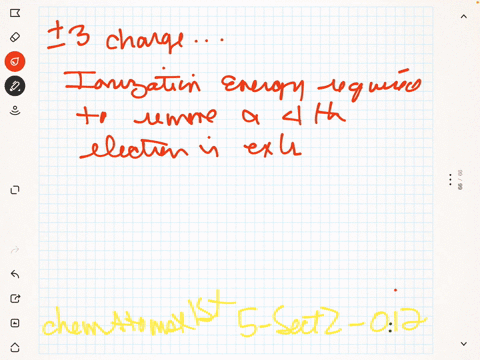 ±3 charge...
Ionization energy required
to remove a 4th
electron is ext
chemAtomext 5-Sect2-0:12